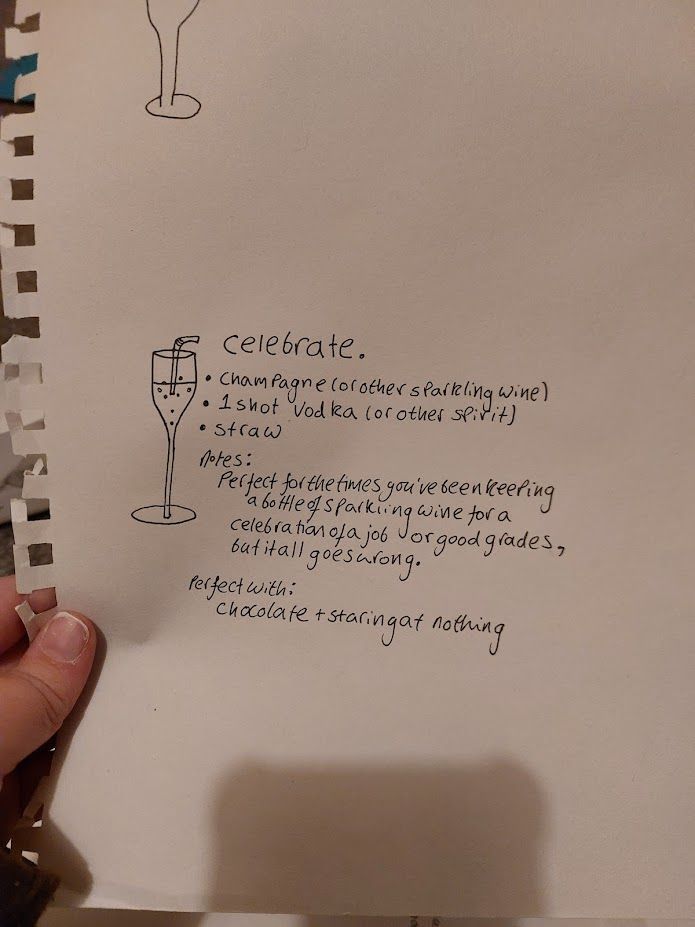 celebrate.
• champagne (or other sparkling wine)
• 1 shot vodka (or other spirit)
• straw
Notes:
Perfect for the times you've been keeping
a bottle of sparkling wine for a
celebration of a job or good grades,
but it all goes wrong.
Perfect with:
chocolate + staring at nothing